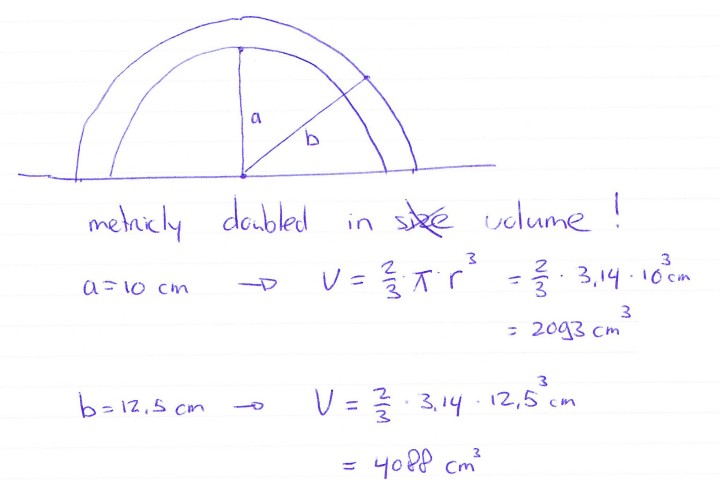 a
b
metricly doubled in size volume !
a = 10 cm → V = 2/3 · π · r³ = 2/3 · 3,14 · 10³ cm
= 2093 cm³
b = 12,5 cm → V = 2/3 · 3,14 · 12,5³ cm
= 4088 cm³